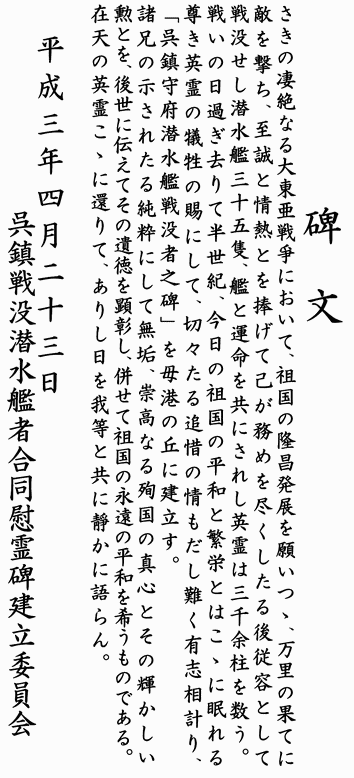 碑文
さきの凄絶なる大東亜戦爭において、祖国の隆昌発展を願いつゝ、万里の果てに
敵を撃ち、至誠と情熱とを捧げて己が務めを尽くしたる後従容として
戦没せし潜水艦三十五隻、艦と運命を共にされし英霊は三千余柱を数う。
戦いの日過ぎ去りて半世紀、今日の祖国の平和と繁栄とはこゝに眠れる
尊き英霊の犠牲の賜にして、切々たる追惜の情もだし難く有志相計り、
「呉鎮守府潜水艦戦没者之碑」を毋港の丘に建立す。
諸兄の示されたる純粋にして無垢、崇高なる殉国の真心とその輝かしい
勲とを、後世に伝えてその遺徳を顕彰し、併せて祖国の永遠の平和を希うものである。
在天の英霊こゝに還りて、ありし日を我等と共に靜かに語らん。
平成三年四月二十三日
呉鎮戦没潜水艦者合同慰霊碑建立委員会